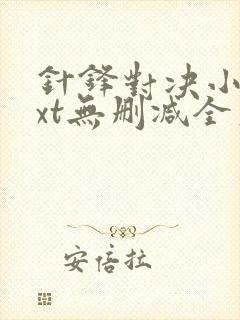 針鋒對決小
xt無刪減全
安倍拉